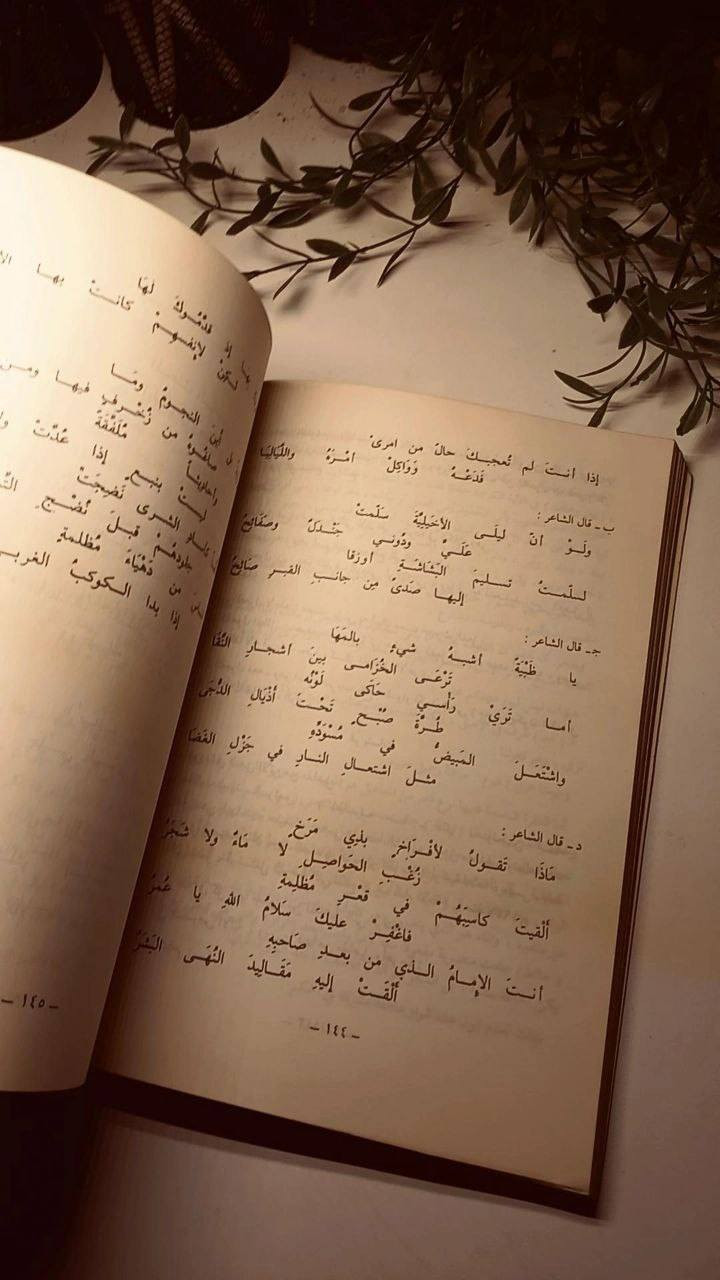 إذا أنتَ لم تُعجبكَ حالُ من امرئٍ
فَدَعْهُ وَوَاكِلْ أَمْرَهُ واللَّيَالِيَا
ب ـ قال الشاعر :
ولَوْ أنّ ليلَى الأخْيَلِيَّةَ سَلّمتْ
عَلَيَّ ودُوني جَنْدَلٌ وصَفَائِحُ
لسلّمتُ تسليمَ البَشَاشَةِ أوزَقا
إليها صَدىً مِن جانبِ القبرِ صَائِحُ
جـ ـ قال الشاعر :
يا ظَبْيَةً أشبهُ شيءٍ بالمَهَا
تَرْعَى الخُزَامى بينَ أشجارِ النَّقَا
أما تَرَيْ رَأسي حَاكَى لَوْنُه
طُرَّةَ صُبْحٍ تَحْتَ أذْيَالِ الدُّجَى
واشْتَعَلَ المُبيضُّ في مُسْوَدِّهِ
مثلَ اشتعالِ النارِ في جَزْلِ الغَضَا
د ـ قال الشاعر :
مَاذَا تَقولُ لأفْرَاخٍ بذِي مَرَخٍ
زُغْبِ الحَواصِلِ لا مَاءٌ ولا شَجَرُ
أَلْقيتَ كاسِبَهُمْ في قعْرِ مُظلِمةٍ
فاغْفِرْ عليكَ سَلامُ اللهِ يا عُمَرُ
أنتَ الإمامُ الذي من بعدِ صَاحبِهِ
أَلْقَتْ إليهِ مَقَاليدَ النُّهَى البَشَرُ
ـ ١٤٤ ـ
إذ قدّمُوكَ لَهَا
لأنفسهِمْ كانتْ بها
أينَ النجومُ ومَا
صاغُوهُ من زُخْرفٍ فيها ومن
مُلَفَّقَةً
ليستْ بنبعٍ إذا عُدَّتْ
الشرى نَضِجَتْ
جلودُهمْ قبلَ نُضْجِ
من دَهْيَاءَ مُظلمةٍ
إذا بدا الكوكبُ
ـ ١٤٥ ـ